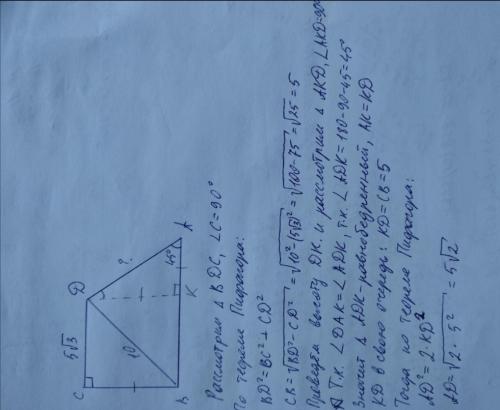 C
5√3
D
?
10
45°
B
K
A
Рассмотрим Δ BDC, ∠C=90°
По теореме Пифагора:
BD²=BC²+CD²
CB=√BD²-CD² =√10²-(5√3)² =√100-75 =√25=5
Проведём высоту DK. и рассмотрим Δ AKD, ∠AKD=90°
Т.к. ∠DAK=∠ADK, т.к. ∠ADK=180-90-45=45°
Значит Δ ADK-равнобедренный, AK=KD
KD в свою очередь: KD=CB=5
Тогда по теореме Пифагора:
AD²=2·KD²
AD=√2·5² =5√2